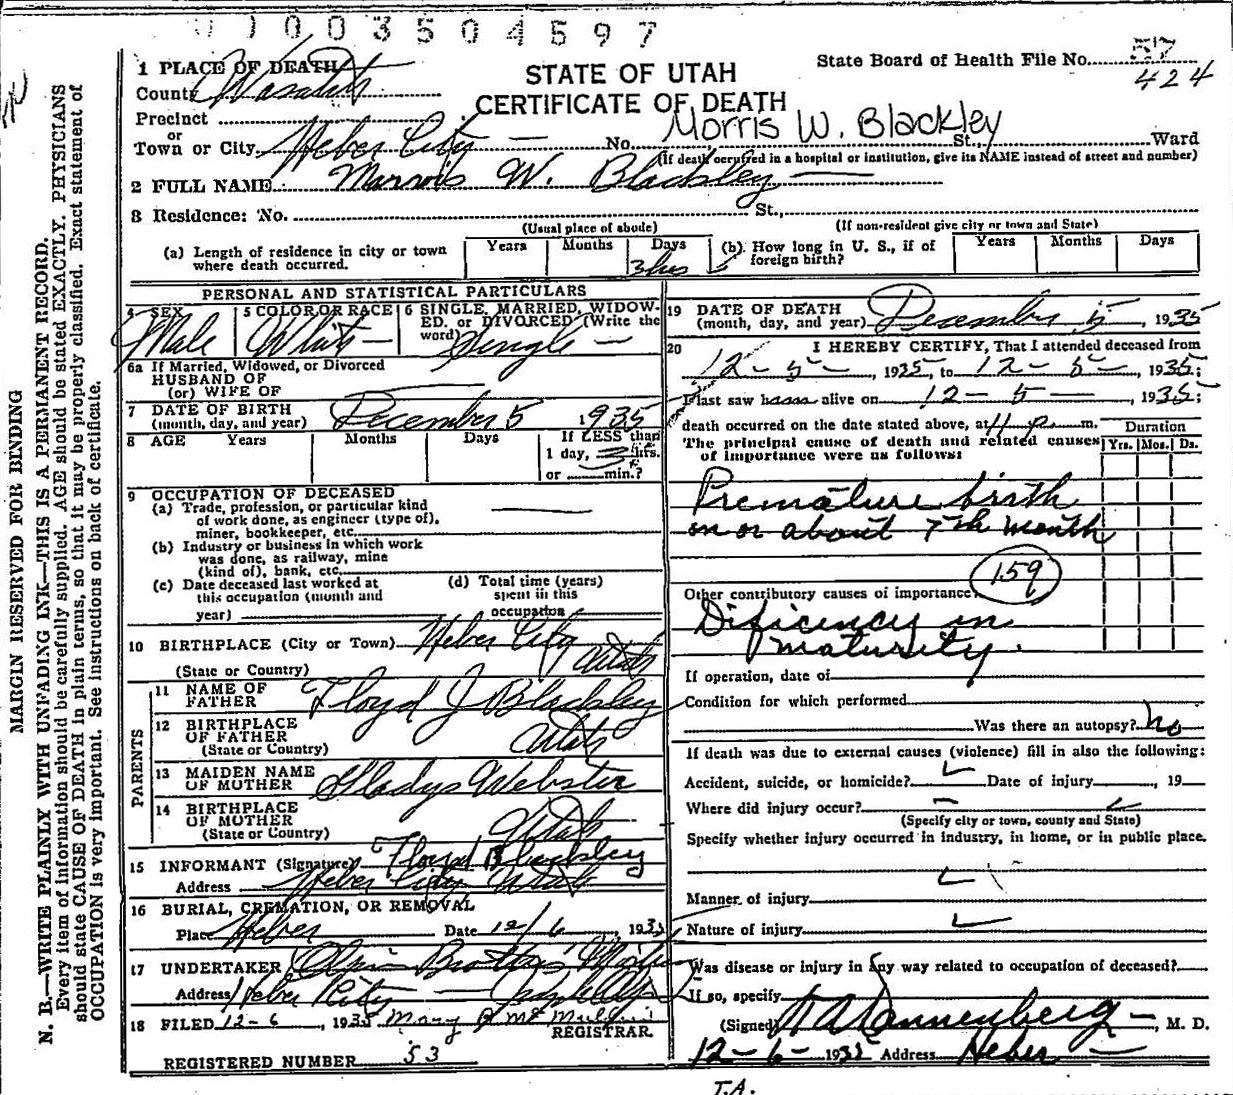 003504597
State Board of Health File No. 57
424
STATE OF UTAH
CERTIFICATE OF DEATH
1 PLACE OF DEATH
County Wasatch
Precinct
or
Town or City Heber City — No. St., Ward
Morris W. Blackley
(If death occurred in a hospital or institution, give its NAME instead of street and number)
2 FULL NAME Morris W. Blackley
3 Residence: No. St.,
(Usual place of abode) (If non-resident give city or town and State)
(a) Length of residence in city or town where death occurred. Years Months Days 3 hrs
(b) How long in U. S., if of foreign birth? Years Months Days
PERSONAL AND STATISTICAL PARTICULARS
4 SEX Male
5 COLOR OR RACE White —
6 SINGLE, MARRIED, WIDOWED, or DIVORCED (Write the word) Single —
6a If Married, Widowed, or Divorced
HUSBAND OF
(or) WIFE OF
7 DATE OF BIRTH
(month, day, and year) December 5 1935
8 AGE Years Months Days If LESS than
1 day, 3 hrs.
or min.?
9 OCCUPATION OF DECEASED
(a) Trade, profession, or particular kind
of work done, as engineer (type of),
miner, bookkeeper, etc.
(b) Industry or business in which work
was done, as railway, mine
(kind of), bank, etc.
(c) Date deceased last worked at
this occupation (month and
year)
(d) Total time (years)
spent in this
occupation
10 BIRTHPLACE (City or Town) Heber City
(State or Country) Utah
PARENTS
11 NAME OF
FATHER Floyd J Blackley
12 BIRTHPLACE
OF FATHER
(State or Country) Utah
13 MAIDEN NAME
OF MOTHER Gladys Webster
14 BIRTHPLACE
OF MOTHER
(State or Country) Utah
15 INFORMANT (Signature) Floyd Blackley
Address Heber City Utah
16 BURIAL, CREMATION, OR REMOVAL
Place Heber Date 12/6, 1935
17 UNDERTAKER Brothers
Address Heber City —
18 FILED 12-6, 1935 Mary
REGISTRAR.
REGISTERED NUMBER 53
19 DATE OF DEATH
(month, day, and year) December 5, 1935
20 I HEREBY CERTIFY, That I attended deceased from
12-5-, 1935, to 12-5-, 1935;
I last saw alive on 12-5-, 1935;
death occurred on the date stated above, at 11 p. m.
Duration
Yrs. Mos. Ds.
The principal cause of death and related causes
of importance were as follows:
Premature birth
on or about 7th month
159
Other contributory causes of importance:
Dificiency in
maturity.
If operation, date of
Condition for which performed
Was there an autopsy? no
If death was due to external causes (violence) fill in also the following:
Accident, suicide, or homicide? Date of injury, 19
Where did injury occur?
(Specify city or town, county and State)
Specify whether injury occurred in industry, in home, or in public place.
Manner of injury
Nature of injury
Was disease or injury in any way related to occupation of deceased?
If so, specify
(Signed) Dannenberg —, M. D.
12-6-1935 Address Heber —
T.A.
MARGIN RESERVED FOR BINDING
N. B.—WRITE PLAINLY WITH UNFADING INK—THIS IS A PERMANENT RECORD.
Every item of information should be carefully supplied. AGE should be stated EXACTLY. PHYSICIANS
should state CAUSE OF DEATH in plain terms, so that it may be properly classified. Exact statement of
OCCUPATION is very important. See instructions on back of certificate.